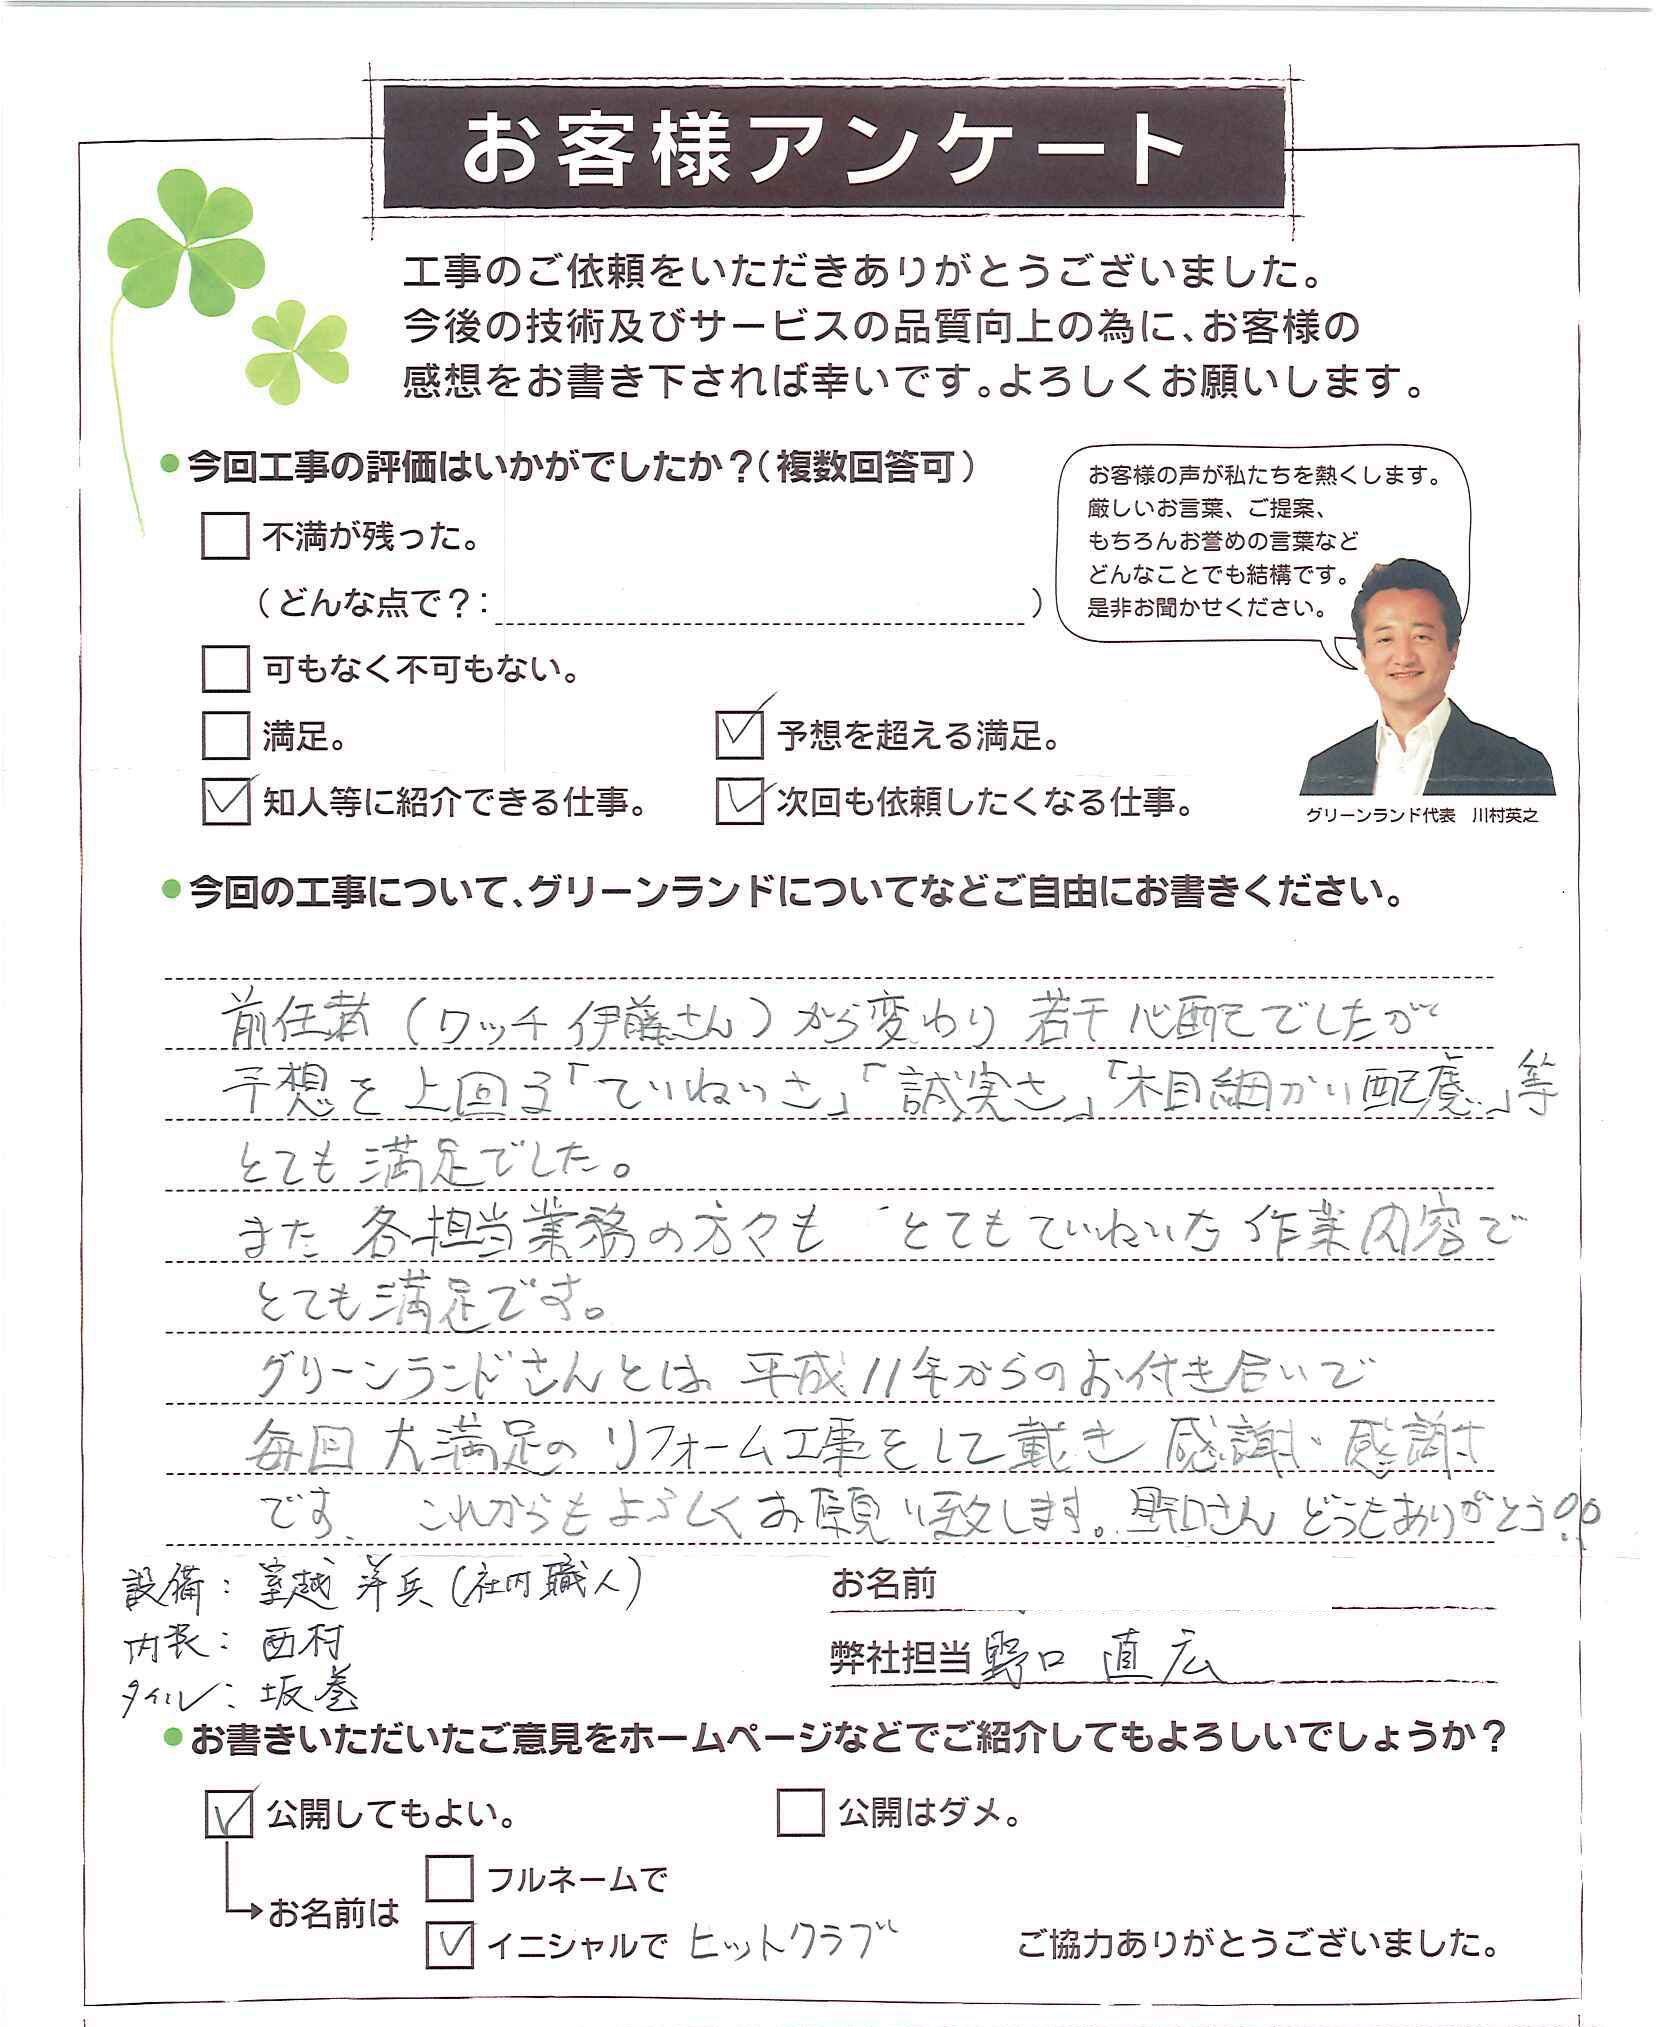 お客様アンケート
工事のご依頼をいただきありがとうございました。
今後の技術及びサービスの品質向上の為に、お客様の
感想をお書き下されば幸いです。よろしくお願いします。
●今回工事の評価はいかがでしたか？（複数回答可）
お客様の声が私たちを熱くします。
厳しいお言葉、ご提案、
もちろんお誉めの言葉など
どんなことでも結構です。
是非お聞かせください。
不満が残った。
（どんな点で？：　）
可もなく不可もない。
満足。
予想を超える満足。
知人等に紹介できる仕事。
次回も依頼したくなる仕事。
グリーンランド代表　川村英之
●今回の工事について、グリーンランドについてなどご自由にお書きください。
前任者（ワッチ 伊藤さん）から変わり 若干 心配でしたが
予想を上回る「ていねいさ」「誠実さ」「木目細かい配慮」等
とても満足でした。
また 各担当業務の方々も とてもていねいな 作業内容で
とても満足です。
グリーンランドさんとは 平成11年からのお付き合いで
毎回 大満足の リフォーム工事をして戴き 感謝・感謝
です、これからもよろしくお願い致します。野口さん どうもありがとう!!
設備：室越 洋兵（社内職人）
内装：西村
タイル：坂巻
お名前
弊社担当 野口 直広
●お書きいただいたご意見をホームページなどでご紹介してもよろしいでしょうか？
公開してもよい。
公開はダメ。
お名前は
フルネームで
イニシャルで ヒットクラブ
ご協力ありがとうございました。